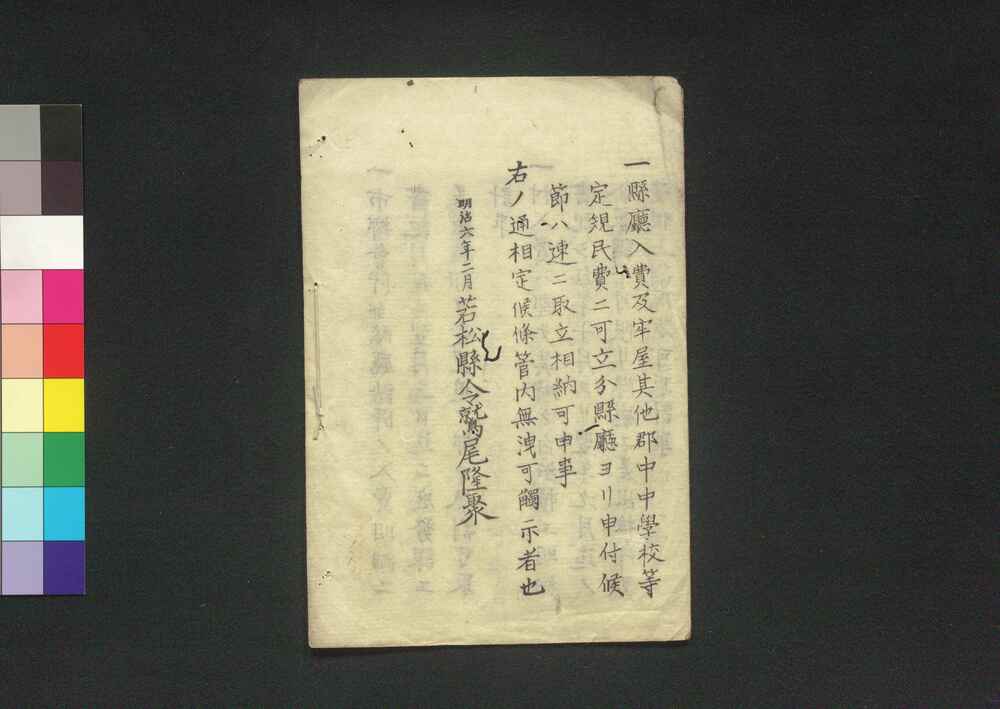 一縣廳入費及牢屋其他郡中中學校等
定規民費ニ可立分縣廳ヨリ申付候
節ハ速ニ取立相納可申事
右ノ通相定候條管内無洩可觸示者也
明治六年二月若松縣令鷲尾隆聚